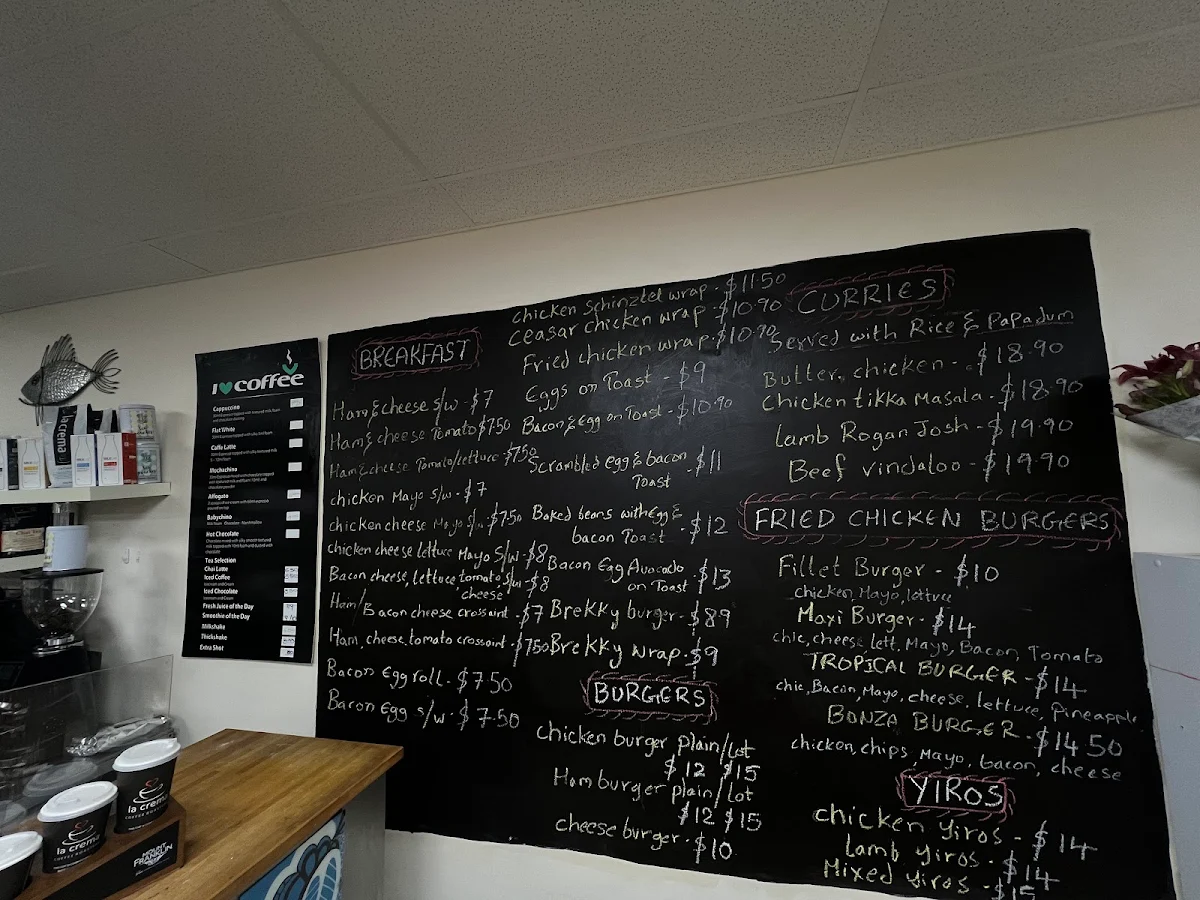 I ♥ coffee
Cappuccino
Flat White
Caffe Latte
Mochachino
Affogato
Babychino
Hot Chocolate
Tea Selection
Chai Latte
Iced Coffee
Iced Chocolate
Fresh Juice of the Day
Smoothie of the Day
Milkshake
Thickshake
Extra Shot
la crema
la crema
la crema
COFFEE ROASTERS
MOUNT FRANKLIN
BREAKFAST
Ham & cheese s/w - $7
Ham & cheese Tomato $7.50
Ham & cheese Tomato/lettuce - $7.50
chicken Mayo s/w - $7
chicken cheese Mayo s/w - $7.50
chicken cheese lettuce Mayo s/w - $8
Bacon cheese, lettuce, tomato s/w - $8
cheese
Ham/Bacon cheese crossaint - $7
Ham, cheese, tomato crossaint - $7.50
Bacon Egg roll - $7.50
Bacon Egg s/w - $7.50
chicken schinztel wrap - $11.50
ceasar chicken wrap - $10.90
Fried chicken wrap - $10.90
Eggs on Toast - $9
Bacon & Egg on Toast - $10.90
Scrambled egg & bacon
Toast - $11
Baked beans with egg &
bacon Toast - $12
Bacon Egg Avacado
on Toast - $13
Brekky burger - $89
Brekky wrap - $9
BURGERS
chicken burger plain/lot
$12 $15
Ham burger plain/lot
$12 $15
cheese burger - $10
CURRIES
Served with Rice & Papadum
Butter chicken - $18.90
chicken tikka Masala - $18.90
lamb Rogan Josh - $19.90
Beef vindaloo - $19.90
FRIED CHICKEN BURGERS
Fillet Burger - $10
chicken, Mayo, lettuce
Maxi Burger - $14
chic, cheese, lett, Mayo, Bacon, Tomato
TROPICAL BURGER - $14
chic, Bacon, Mayo, cheese, lettuce, Pineapple
BONZA BURGER - $14.50
chicken, chips, Mayo, bacon, cheese
YIROS
chicken Yiros - $14
Lamb yiros - $14
Mixed yiros - $15